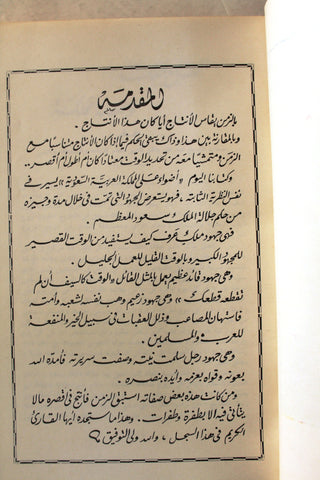 المقدمة
بالزمن يقاس الأنتاج أيا كان هذا الأنتاج .
وبالمقارنة بين هذا وذاك ينبغي الحكم فيما إذا كان الأنتاج متناسبا مع
الزمن ومتمشيا معه من تحديد الوقت معنا إذا كان أم أطول أم أقصر ..
وكتابنا اليوم " أضواء على المملكة العربية السعودية " يسير في
نفس النظرية الثابتة . فهو يستعرض الجهود التي تمت في خلال مدة وجيزه
من حكم جلالة الملك سعود المعظم .
فهي جهود ملك عرف كيف يستفيد من الوقت القصير
للمجهود الكبير وبالوقت القليل للعمل الجليل .
وهي جهود قائد عظيم يعمل بالمثل القائل " الوقت كالسيف أن لم
تقطعه قطعك " وهي جهود زعيم وهب نفسه لشعبه وأمته
فاستهان المصاعب وذلل العقبات في سبيل الخير والمنفعة
للعرب والمسلمين .
وهي جهود رجل سلمت نيته وصفت سريرته فأمده الله
بعونه وقواه بعزمه وأيده بنصره .
ومن كانت هذه بعض صفاته استبق الزمن فأنتج في قصره مالا
يتأتى فيه ألا بطفرة وطفرات . وهذا ما ستجده أيها القارئ
الكريم في هذا السجل ، والله ولى التوفيق ؟